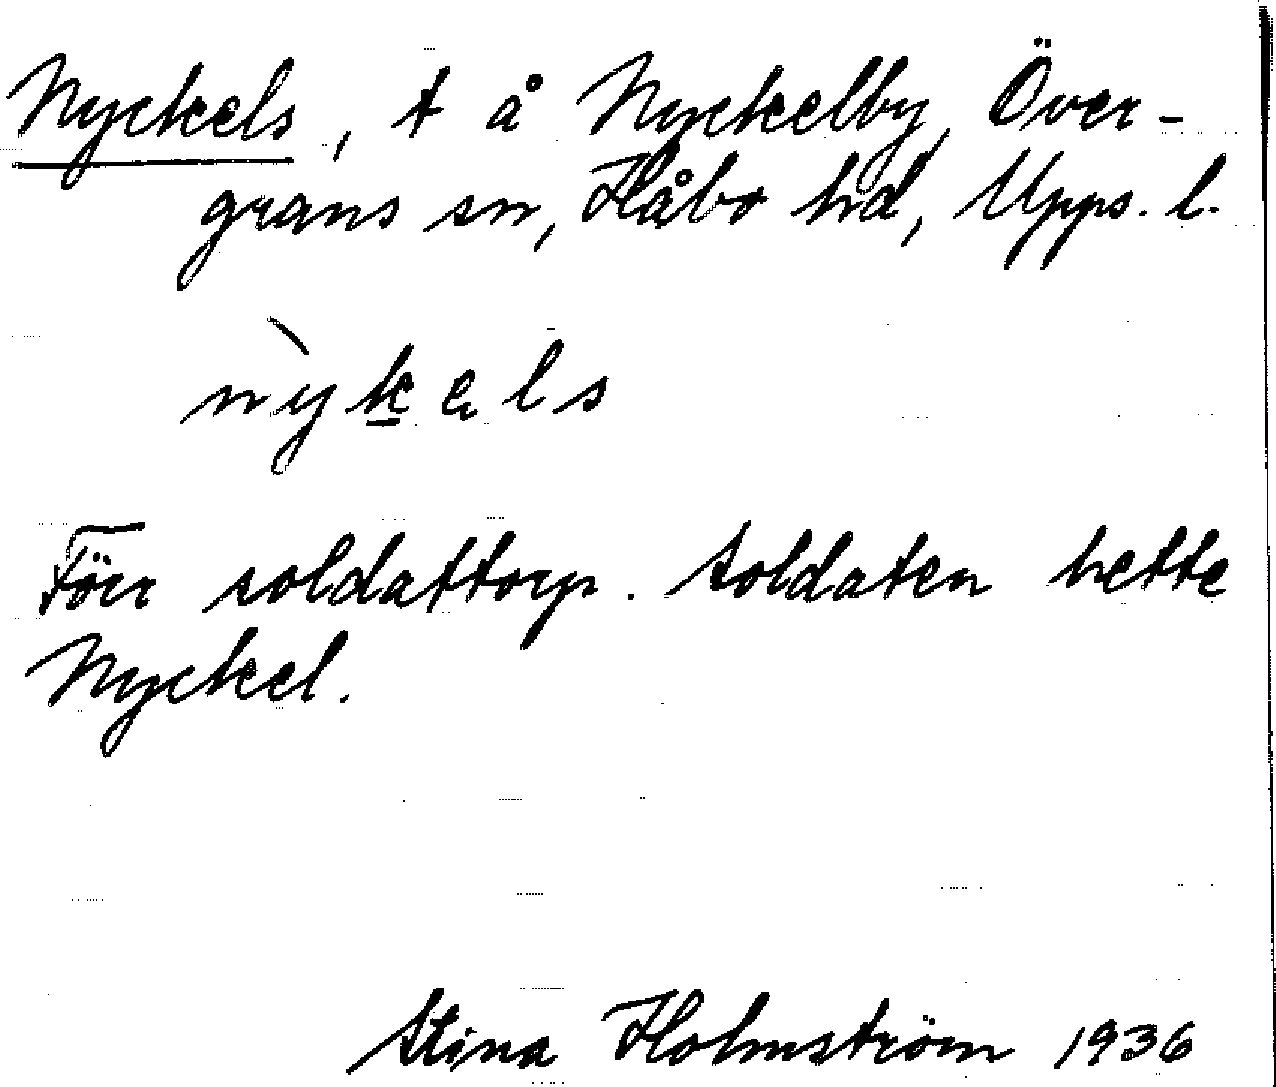 Nyckels, t å Nyckelby, Över-
grans sn, Håbo hd, Upps. l.
nỳkels
Förr soldattorp. Soldaten hette
Nyckel.
Stina Holmström 1936